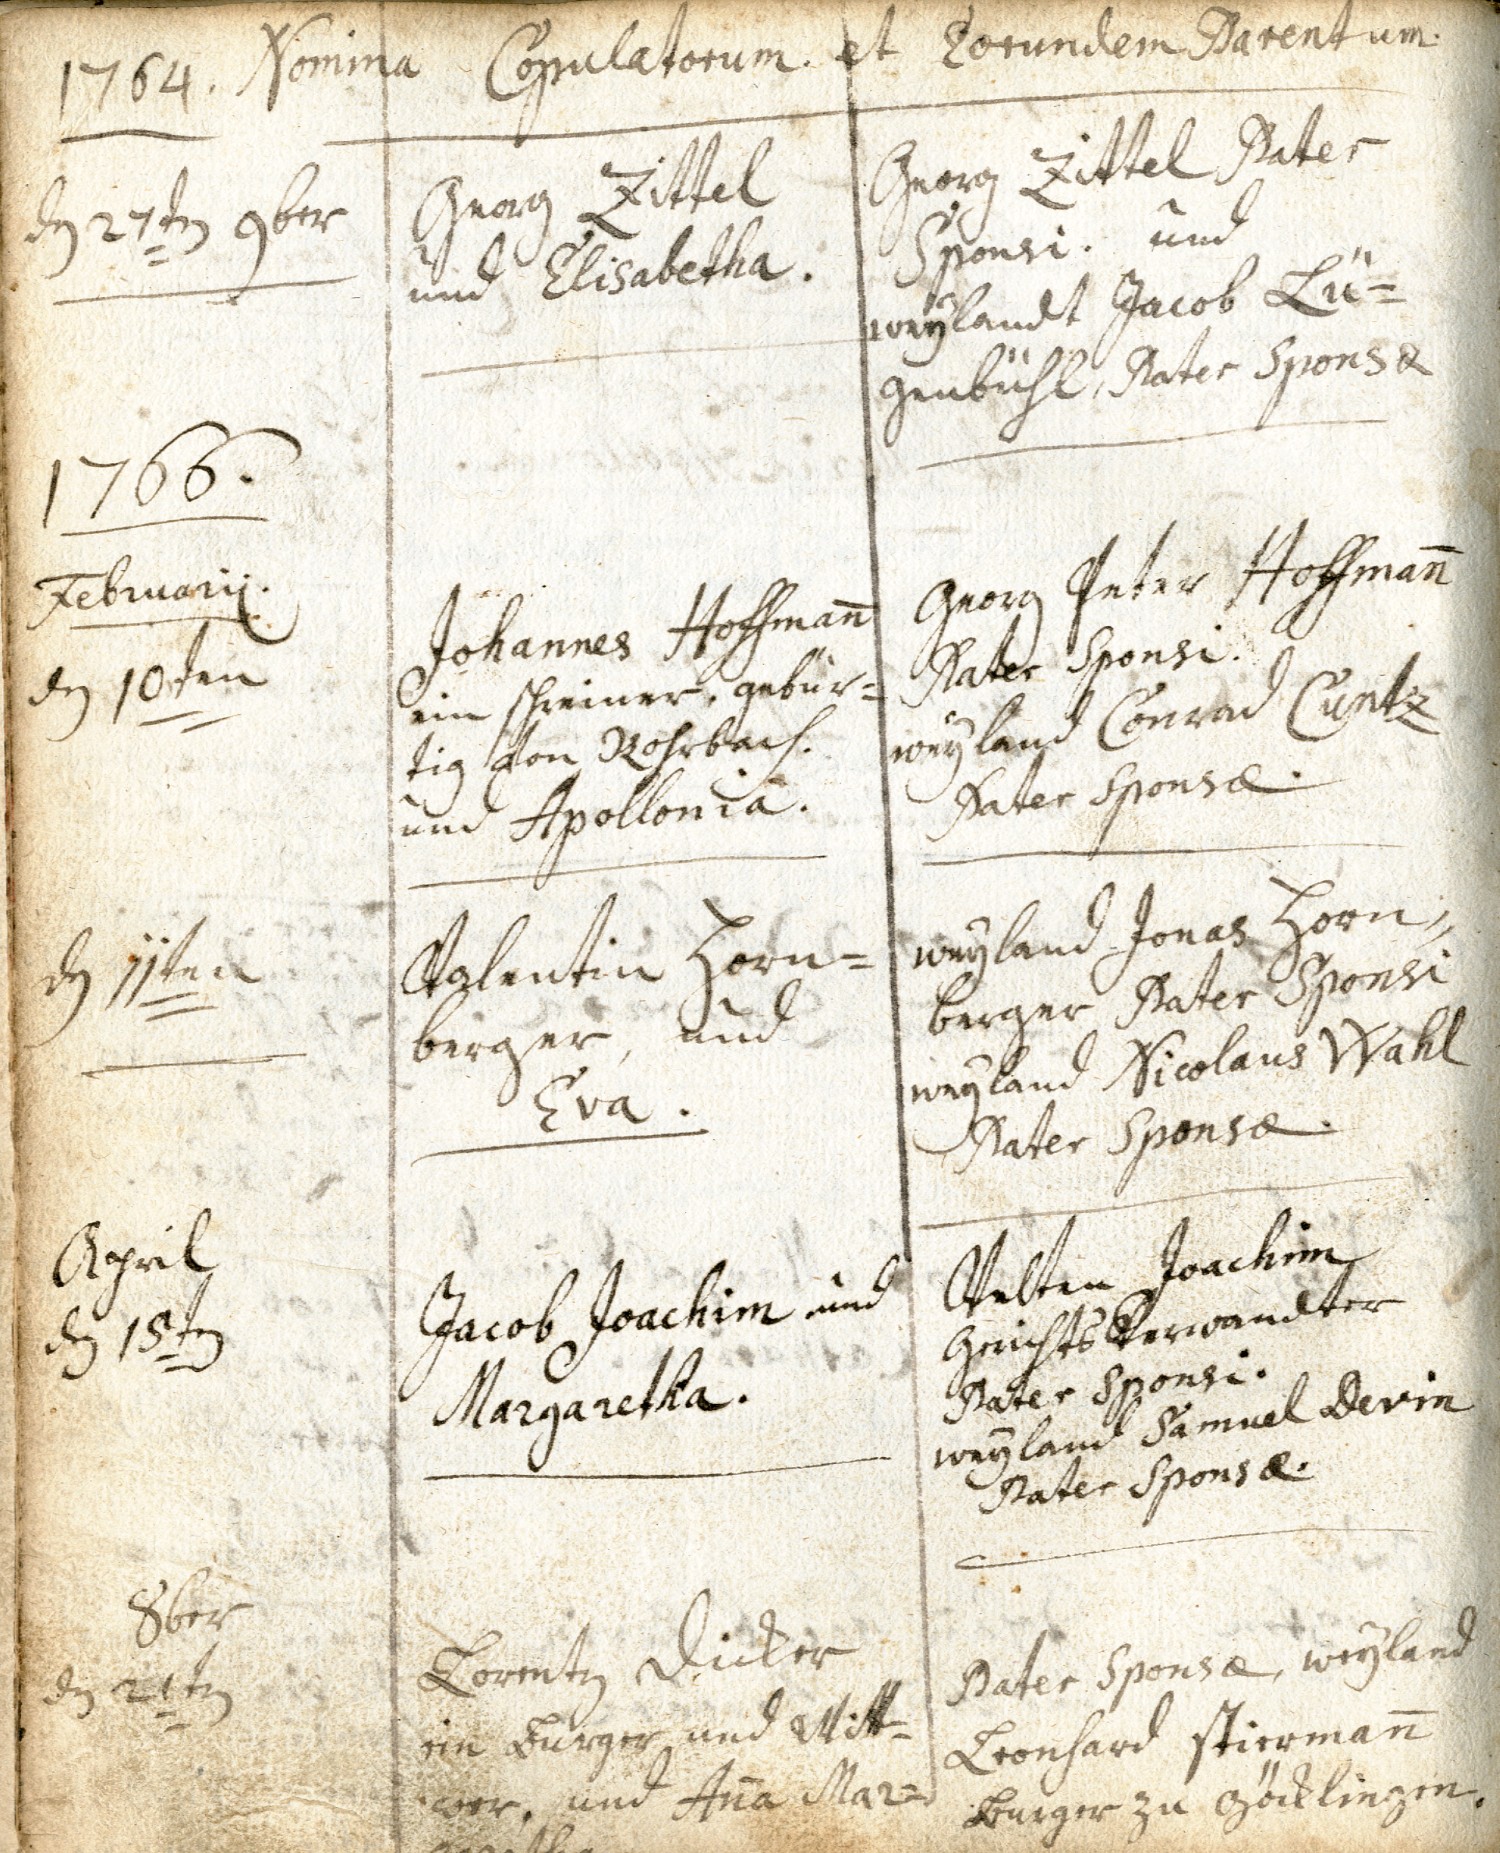 1764. Nomina Copulatorum. et Eorundem Parentum.
dn 27tn 9ber
Georg Zittel
und Elisabetha.
Georg Zittel Pater
Sponsi. und
weylandt Jacob Lü=
genbühl, Pater Sponsæ
1766.
Februarii.
dn 10ten
Johannes Hoffman̄
ein schreiner, gebür=
tig von Rohrbach.
und Apollonia.
Georg Peter Hoffman̄
Pater Sponsi.
weyland Conrad Cuntz
Pater Sponsæ.
dn 11ten
Valentin Horn=
berger, und
Eva.
weyland Jonas Horn„
berger Pater Sponsi
weyland Nicolaus Wahl
Pater Sponsæ.
April
dn 15tn
Jacob Joachim und
Margaretha.
Velten Joachim
Gerichts Verwandter
Pater Sponsi.
weyland Samuel Devin
Pater Sponsæ.
8ber
dn 21tn
Lorentz Dicker
ein Burger und Witt=
wer, und An̄a Mar=
garetha
Pater Sponsæ, weyland
Leonhard Stierman̄
Burger zu Göcklingen.